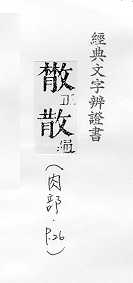 經典文字辨證書
正
散通
(肉部.P.26)